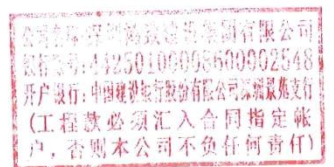 公司名称:深圳 集团有限公司
银行账号:44250100008600002548
开户银行:中国建设银行股份有限公司深圳景苑支行
(工程款必须汇入合同指定帐
户,否则本公司不负任何责任)